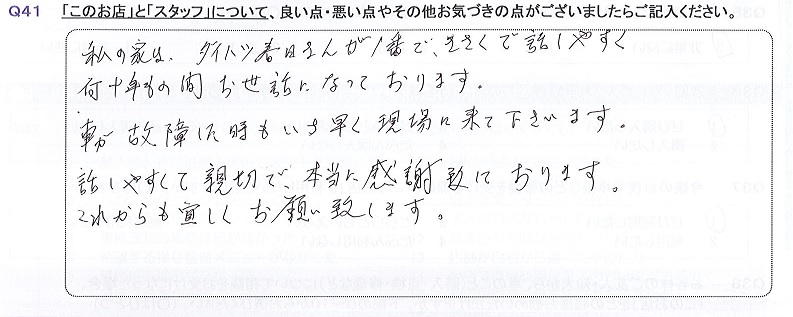 Q41 「このお店」と「スタッフ」について、良い点・悪い点やその他お気づきの点がございましたらご記入ください。
私の家は、ダイハツ春日さんが1番で、きさくで話しやすく
何十年もの間お世話になっております。
車が故障した時もいち早く現場に来て下さいます。
話しやすくて親切で、本当に感謝致しております。
これからも宜しくお願い致します。